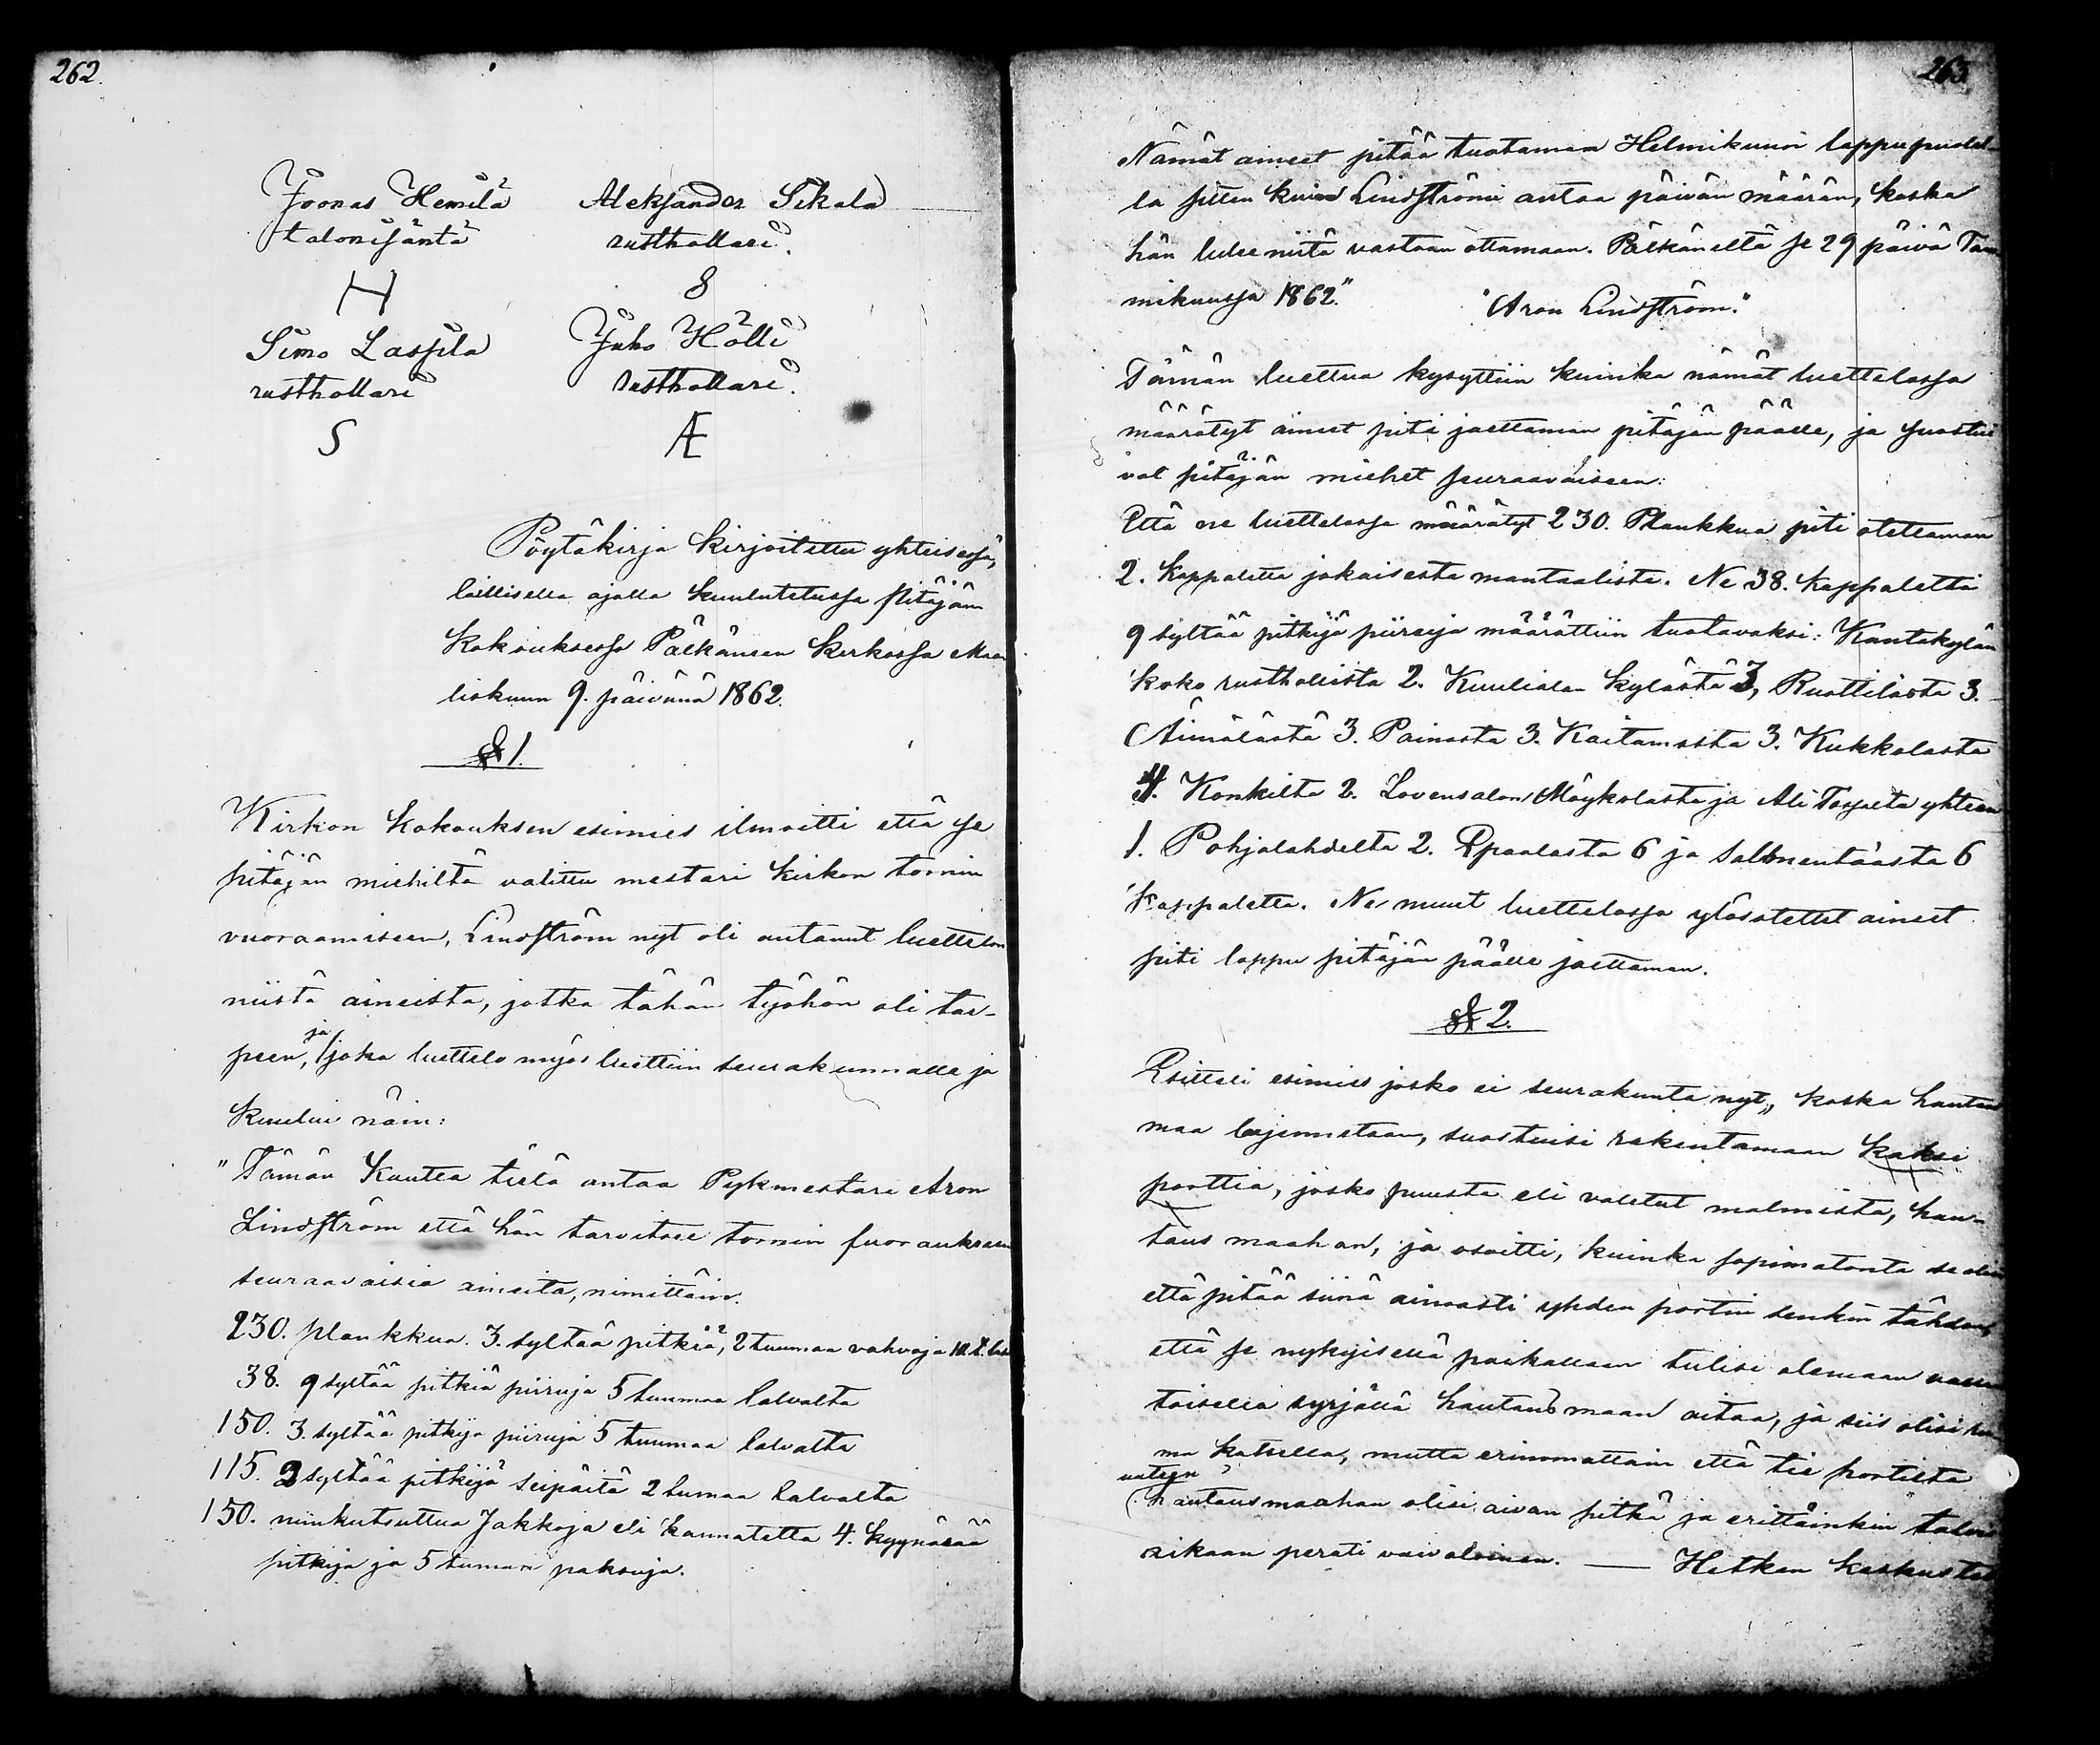 262.
Joonas Hemilä Aleksander Sikala
talonisäntä rusthollari.
H 8
Simo Laspila Juho Hölli
rusthollari rusthollari.
S Æ
Pöytäkirja kirjoitettu yhteisessä,
laillisella ajalla kuulutetussa Pitäjän
Kokouksessa Pälkäneen Kirkossa Maa-
liskuun 9. päivänä 1862.
§ 1.
Kirkon Kokouksen esimies ilmoitti että se
pitäjän miehiltä valittu mestari Kirkon tornin
vuoraamiseen, Lindström nyt oli antanut luettelon
niistä aineista, jotka tähän työhön oli tar-
peen, ja joka luettelo myös luettiin seurakunnalle ja
kuului näin:
"Tämän Kautta tielä antaa Pykmestari Aron
Lindström että hän tarvitsee tornin fuoraukseen
seuraavaisia aineita, nimittäin.
230. plankkua. 3. syltää pitkiä, 2 tuumaa vahvoja
38. 9 syltää pitkiä piiruja 5 tuumaa latvalta
150. 3. syltää pitkijä piiruja 5 tuumaa latvalta
115. 2 syltää pitkijä seipäitä 2 tumaa latvalta
150. niinkutsuttua Jakkoja eli kannatetta 4. kyynärää
pitkijä ja 5 tumaa paksuja.
263.
Nämät aineet pitää tuotaman Helmikuun loppupuolel-
la sitten kuin Lindströmi antaa päivän määrän, koska
hän tulee niitä vastaan ottamaan. Pälkäneltä se 29 päivä Tam
mikuussa 1862." "Aron Lindström."
Tämän luettua kysyttiin kuinka nämät luettelossa
määrätyt aineet piti jaettaman pitäjän päälle, ja suostui
vat pitäjän miehet seuraavaiseen:
Että ne luettelossa määrätyt 230. Plankkua piti otettaman
2. kappaletta jokaisesta mantaalista. Ne 38. kappaletta
9 syltää pitkijä piiruja määrättiin tuotavaksi: Kantakylän
koko rusthollista 2. Kuulialan kylästä 3, Ruottilasta 3.
Äimälästä 3. Painosta 3. Kaitamosta 3. Kukkolasta
4. Konkilta 2. Lovensalon Möykolasta ja Ali Torpalta yhteen
1. Pohjalahdelta 2. Epaalasta 6 ja Salmentaasta 6
kappaletta. Ne muut luettelossa ylösotettet aineet
piti loppu pitäjän päälle jaettaman.
§ 2.
Esitteli esimies josko ei seurakunta nyt, koska hautaus
maa laajennetaan, suostuisi rakentamaan kaksi
porttia, josko puusta eli valetut malmista, hau-
taus maahan, ja osoitti, kuinka sopimatonta se olisi
että pitää siinä ainoasti yhden portin senkin tähden,
että se nykyisellä paikallaan tulisi olemaan
toisella syrjällä hautaus maan aitaa, ja siis olisi ru
ma katsella, mutta erinomattain että tie portista
uuteen hautausmaahan olisi aivan pitkä ja erittäinkin talvis
aikaan peräti vaivaloinen. — Hetken keskustel